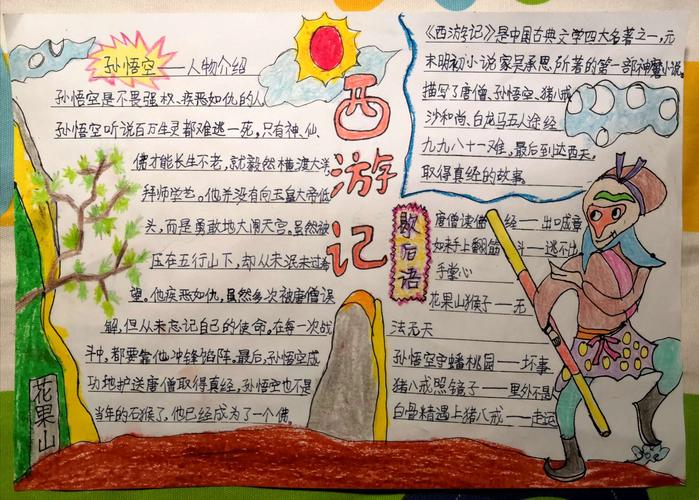 孙悟空——人物介绍
孙悟空是不畏强权、疾恶如仇的人
孙悟空听说百万生灵都难逃一死,只有神、仙、
佛才能长生不老,就毅然横渡大洋
拜师学艺。他并没有向玉皇大帝低
头,而是勇敢地大闹天宫。虽然被
压在五行山下,却从未泯未过希
望。他疾恶如仇,虽然多次被唐僧误
解,但从未忘记自己的使命,在每一次战
斗中,都要靠他冲锋陷阵。最后,孙悟空成
功地护送唐僧取得真经,孙悟空也不是
当年的石猴了,他已经成为了一个佛。
花果山
西游记
《西游记》是中国古典文学四大名著之一,元
末明初小说家吴承恩所著的第一部神魔小说。
描写了唐僧、孙悟空、猪八戒
沙和尚、白龙马五人途经
九九八十一难,最后到达西天,
取得真经的故事。
歇后语
唐僧读佛经——出口成章
如来手上翻筋斗——逃不出
手掌心
花果山猴子——无
法无天
孙悟空守蟠桃园——坏事
猪八戒照镜子——里外不是人
白骨精遇上猪八戒——走运